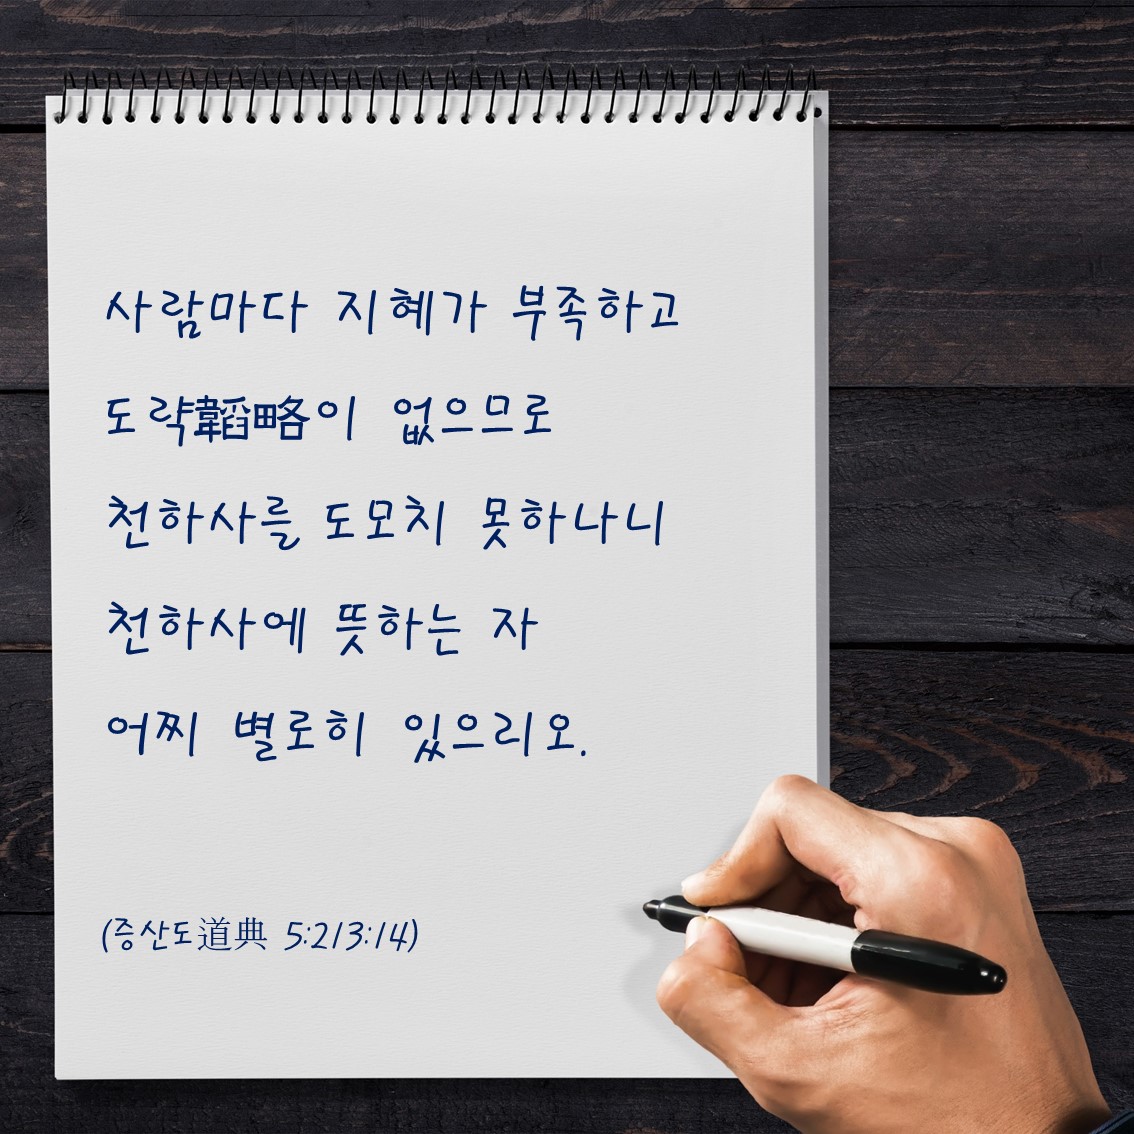 사람마다 지혜가 부족하고
도략韜略이 없으므로
천하사를 도모치 못하나니
천하사에 뜻하는 자
어찌 별로히 있으리오.
(증산도道典 5:213:14)